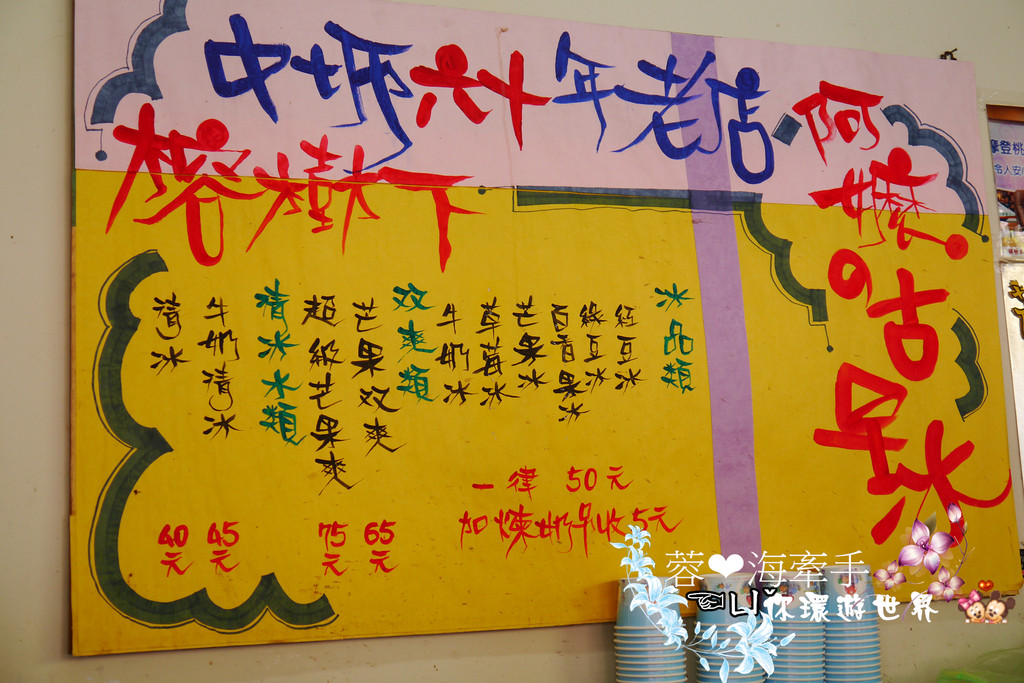 中壢六十年老店
榕樹下
阿嬤の古早冰
冰品類
紅豆冰
綠豆冰
百香果冰
芒果冰
草莓冰
牛奶冰
一律 50元
加煉奶早收5元
双爽類
芒果双爽
65元
超級芒果爽
75元
清冰水類
牛奶清冰
45元
清冰
40元
摩登桃
令人安
蓉❤海牽手
☜凵你環遊世界